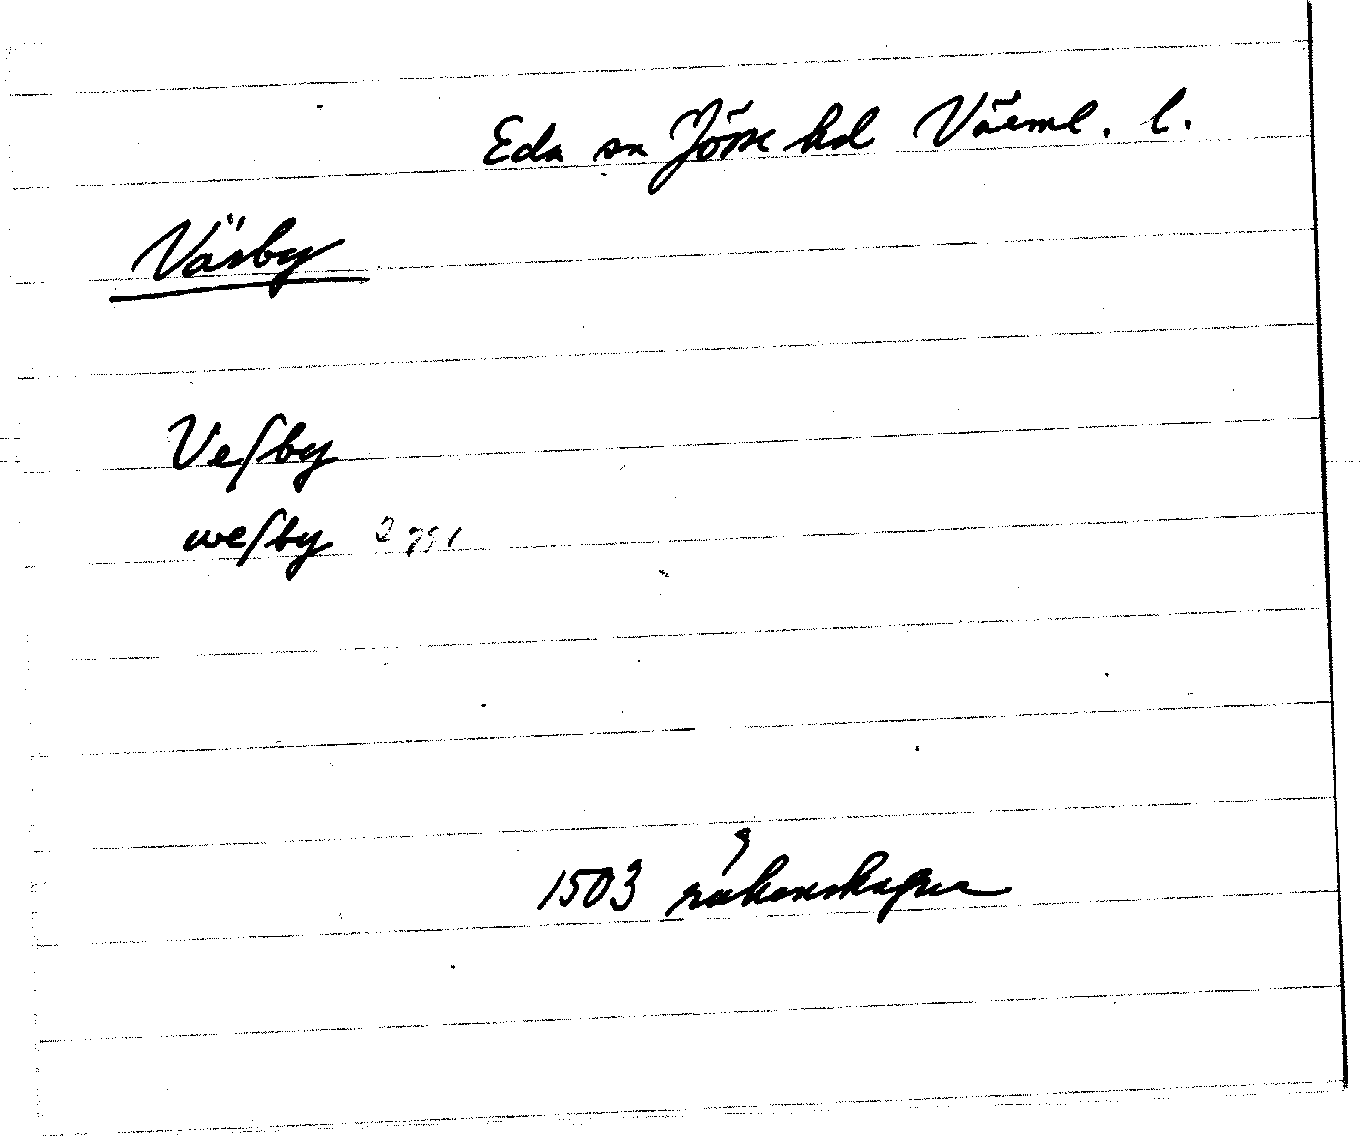 Eda sn Jösse hd Värml. l.
Väsby
Veſby
weſby
1503 räkenskaper